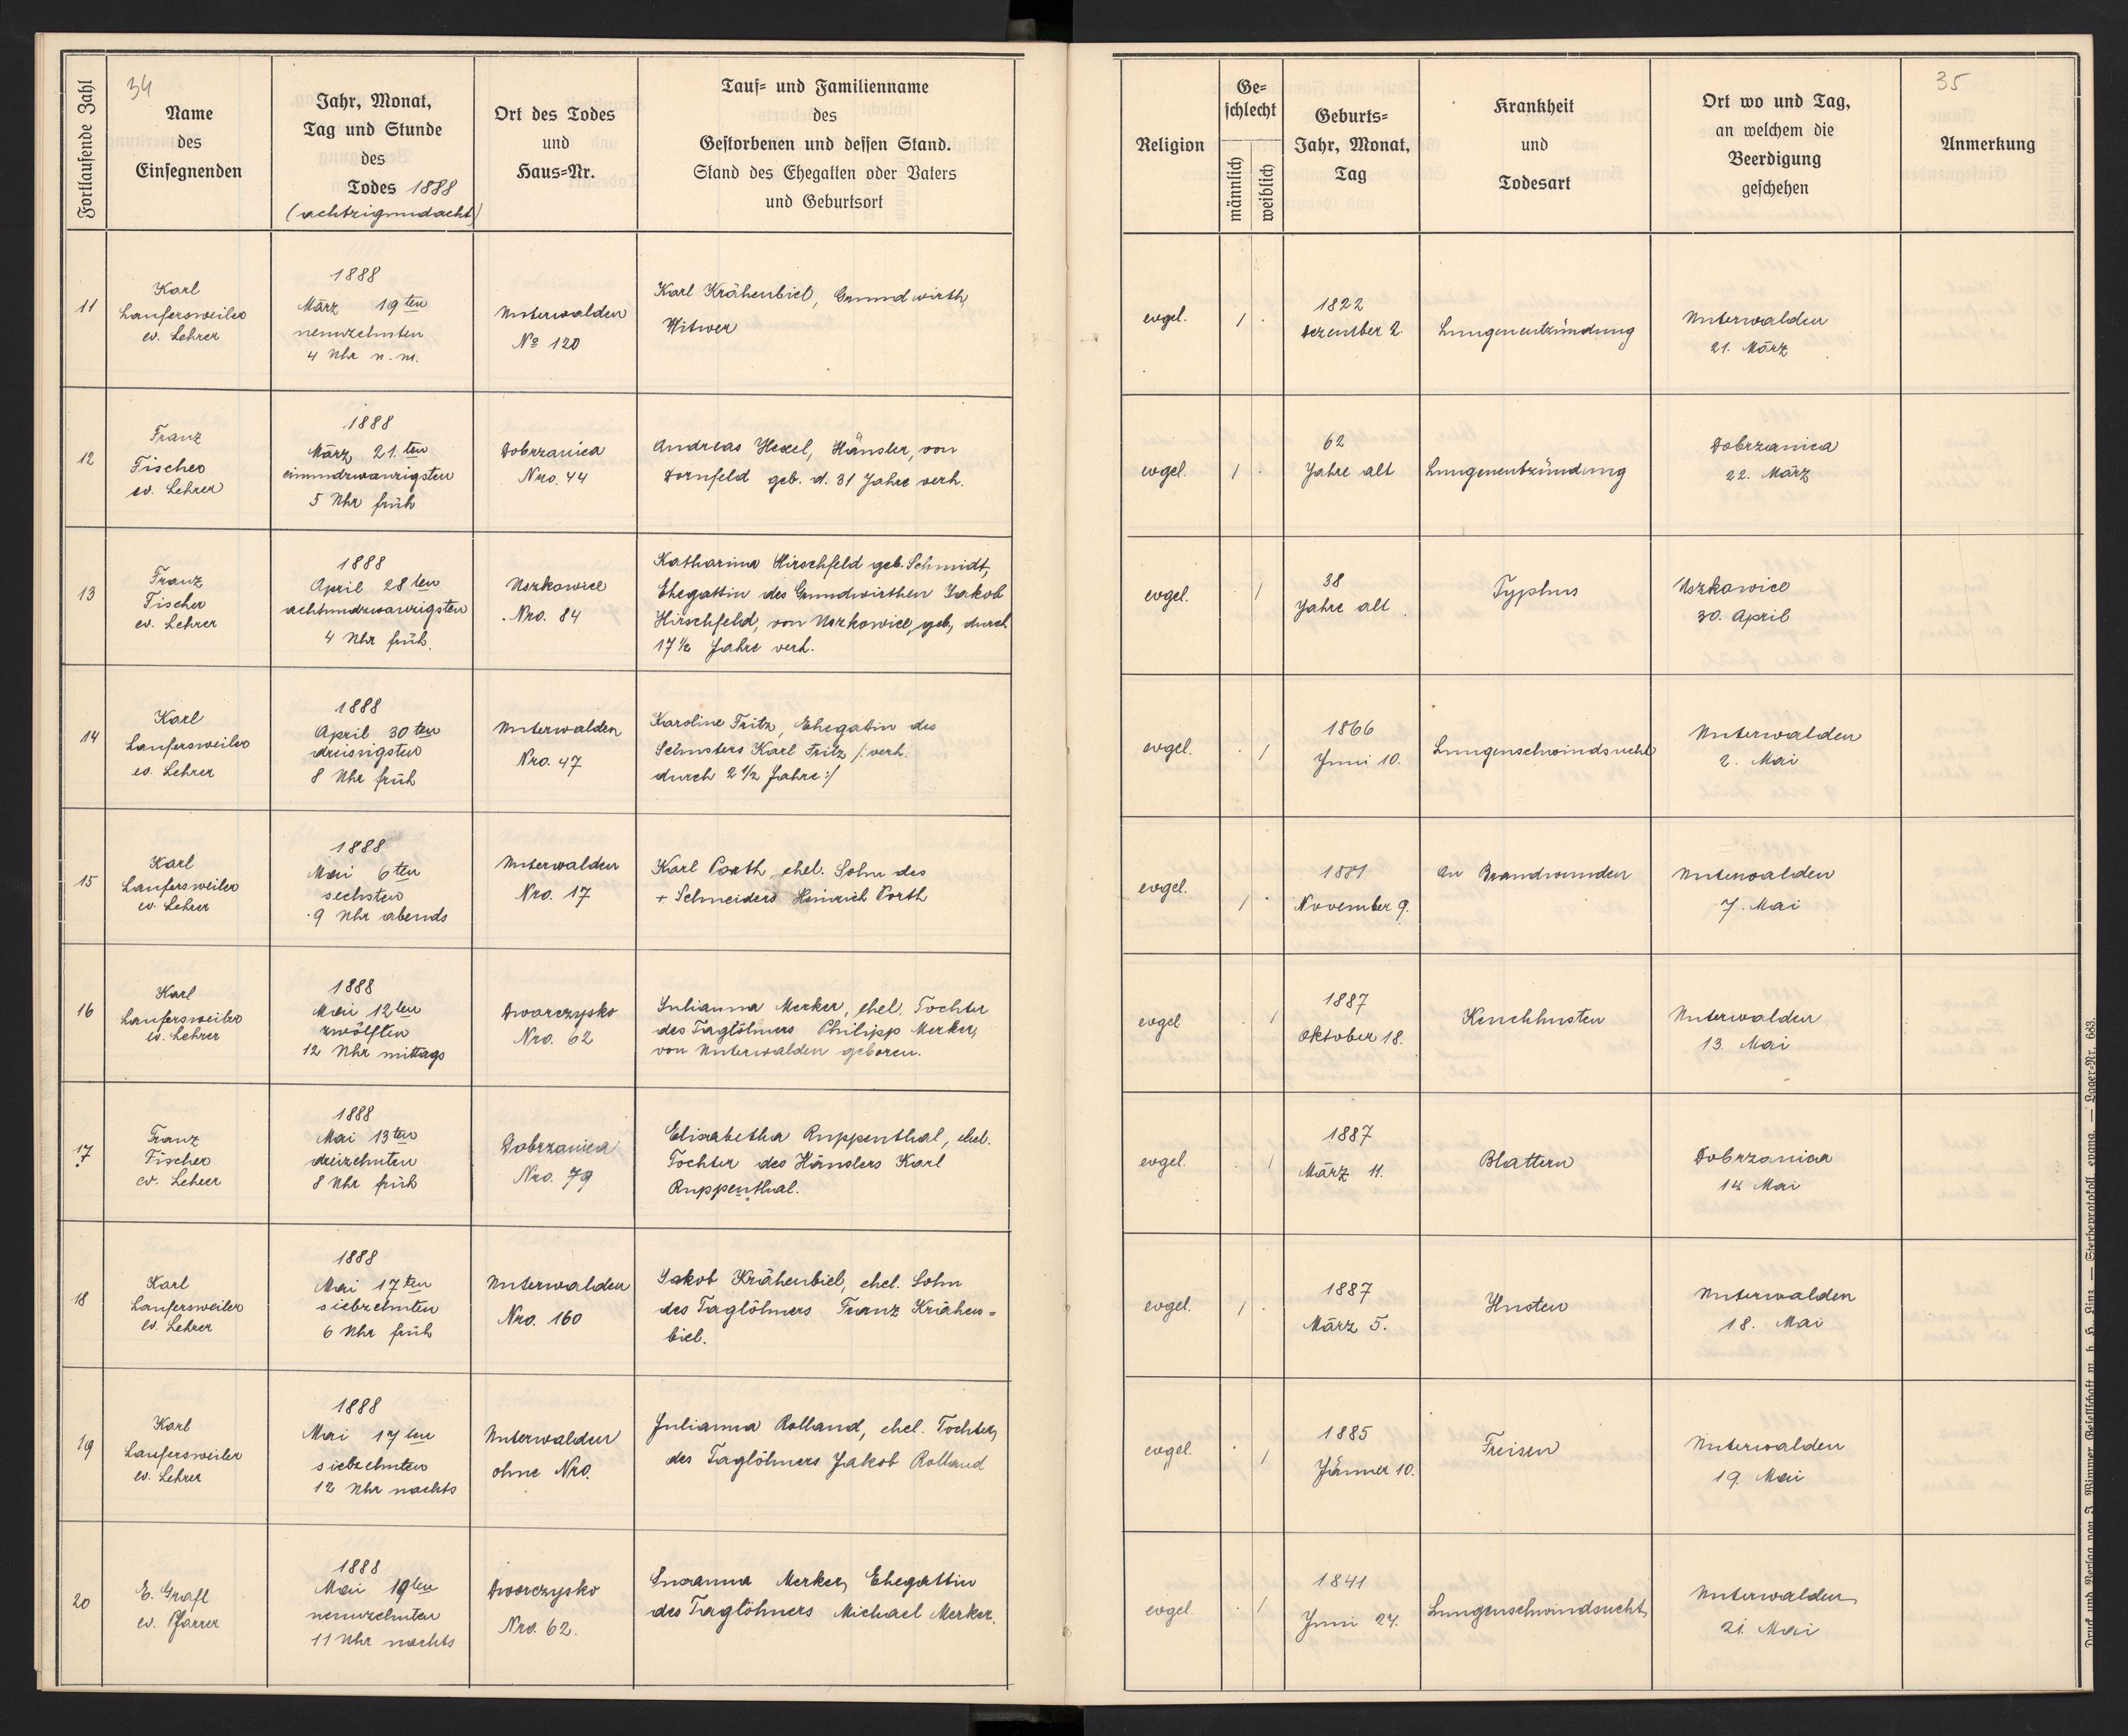 34
Fortlaufende Zahl
Name
des
Einsegnenden
Jahr, Monat,
Tag und Stunde
des
Todes 1888
(achtzigundacht)
Ort des Todes
und
Haus-Nr.
Tauf- und Familienname
des
Gestorbenen und dessen Stand.
Stand des Ehegatten oder Vaters
und Geburtsort
Religion
Ge-
schlecht
männlich
weiblich
Geburts-
Jahr, Monat,
Tag
Krankheit
und
Todesart
Ort wo und Tag,
an welchem die
Beerdigung
geschehen
35
Anmerkung
11
Karl
Laufersweiler
ev. Lehrer
1888
März 19ten
neunzehnten
4 Uhr n. m.
Unterwalden
No 120
Karl Krähenbiel, Grundwirth,
Witwer
evgl.
1 .
1822
Dezember 2.
Lungenentzündung
Unterwalden
21. März
12
Franz
Fischer
ev. Lehrer
1888
März 21.ten
einundzwanzigsten
5 Uhr früh
Dobrzanica
Nro. 44
Andreas Hexel, Häusler, von
Dornfeld geb. d. 31 Jahre verh.
evgl.
1 .
62
Jahre alt
Lungenentzündung
Dobrzanica
22. März
13
Franz
Fischer
ev. Lehrer
1888
April 28ten
achtundzwanzigsten
4 Uhr früh.
Uszkowice
Nro. 84
Katharina Hirschfeld geb. Schmidt,
Ehegattin des Grundwirthen Jakob
Hirschfeld, von Uszkowice geb, durch
17 1/2 Jahre verh.
evgl.
. 1
38
Jahre alt
Typhus
Uszkowice
30. April
14
Karl
Laufersweiler
ev. Lehrer
1888
April 30ten
dreissigsten
8 Uhr früh
Unterwalden
Nro. 47
Karoline Fritz, Ehegatin des
Schusters Karl Fritz /: verh.
durch 2 1/2 Jahre :/
evgl.
. 1
1866
Juni 10.
Lungenschwindsucht
Unterwalden
2. Mai
15
Karl
Laufersweiler
ev. Lehrer
1888
Mai 6ten
sechsten
9 Uhr abends
Unterwalden
Nro. 17
Karl Porth, ehel. Sohn des
+ Schneiders Heinrich Porth
evgl.
1 .
1881
November 9.
An Brandwunden
Unterwalden
7. Mai
16
Karl
Laufersweiler
ev. Lehrer
1888
Mai 12ten
zwölften
12 Uhr mittags
Dworczysko
Nro. 62
Julianna Merker, ehel. Tochter
des Taglöhners Philipp Merker,
von Unterwalden geboren.
evgl
. 1
1887
Oktober 18.
Keuchhusten
Unterwalden
13. Mai
17
Franz
Fischer
ev. Lehrer
1888
Mai 13ten
dreizehnten
8 Uhr früh
Dobrzanica
Nro. 79
Elisabetha Ruppenthal, ehel.
Tochter des Häuslers Karl
Ruppenthal.
evgl.
. 1
1887
März 11.
Blattern
Dobrzanica
14 Mai
18
Karl
Laufersweiler
ev. Lehrer
1888
Mai 17ten
siebzehnten
6 Uhr früh
Unterwalden
Nro. 160
Jakob Krähenbiel, ehel. Sohn
des Taglöhners Franz Krähen=
biel.
evgl.
1 .
1887
März 5.
Husten
Unterwalden
18. Mai
19
Karl
Laufersweiler
ev. Lehrer
1888
Mai 17ten
siebzehnten
12 Uhr nachts
Unterwalden
ohne Nro.
Julianna Rolland, ehel. Tochter
des Taglöhners Jakob Rolland
evgl.
. 1
1885
Jänner 10.
Freisen
Unterwalden
19. Mai
20
E. Grafl
ev. Pfarrer
1888
Mai 19ten
neunzehnten
11 Uhr nachts
Dworczysko
Nro. 62.
Susanna Merker, Ehegattin
des Taglöhners Michael Merker.
evgl.
. 1
1841
Juni 24.
Lungenschwindsucht
Unterwalden
21. Mai
Druck und Verlag von J. Wimmer Gesellschaft m. b. H., Linz. — Sterbeprotokoll evang. — Lager-Nr. 683.